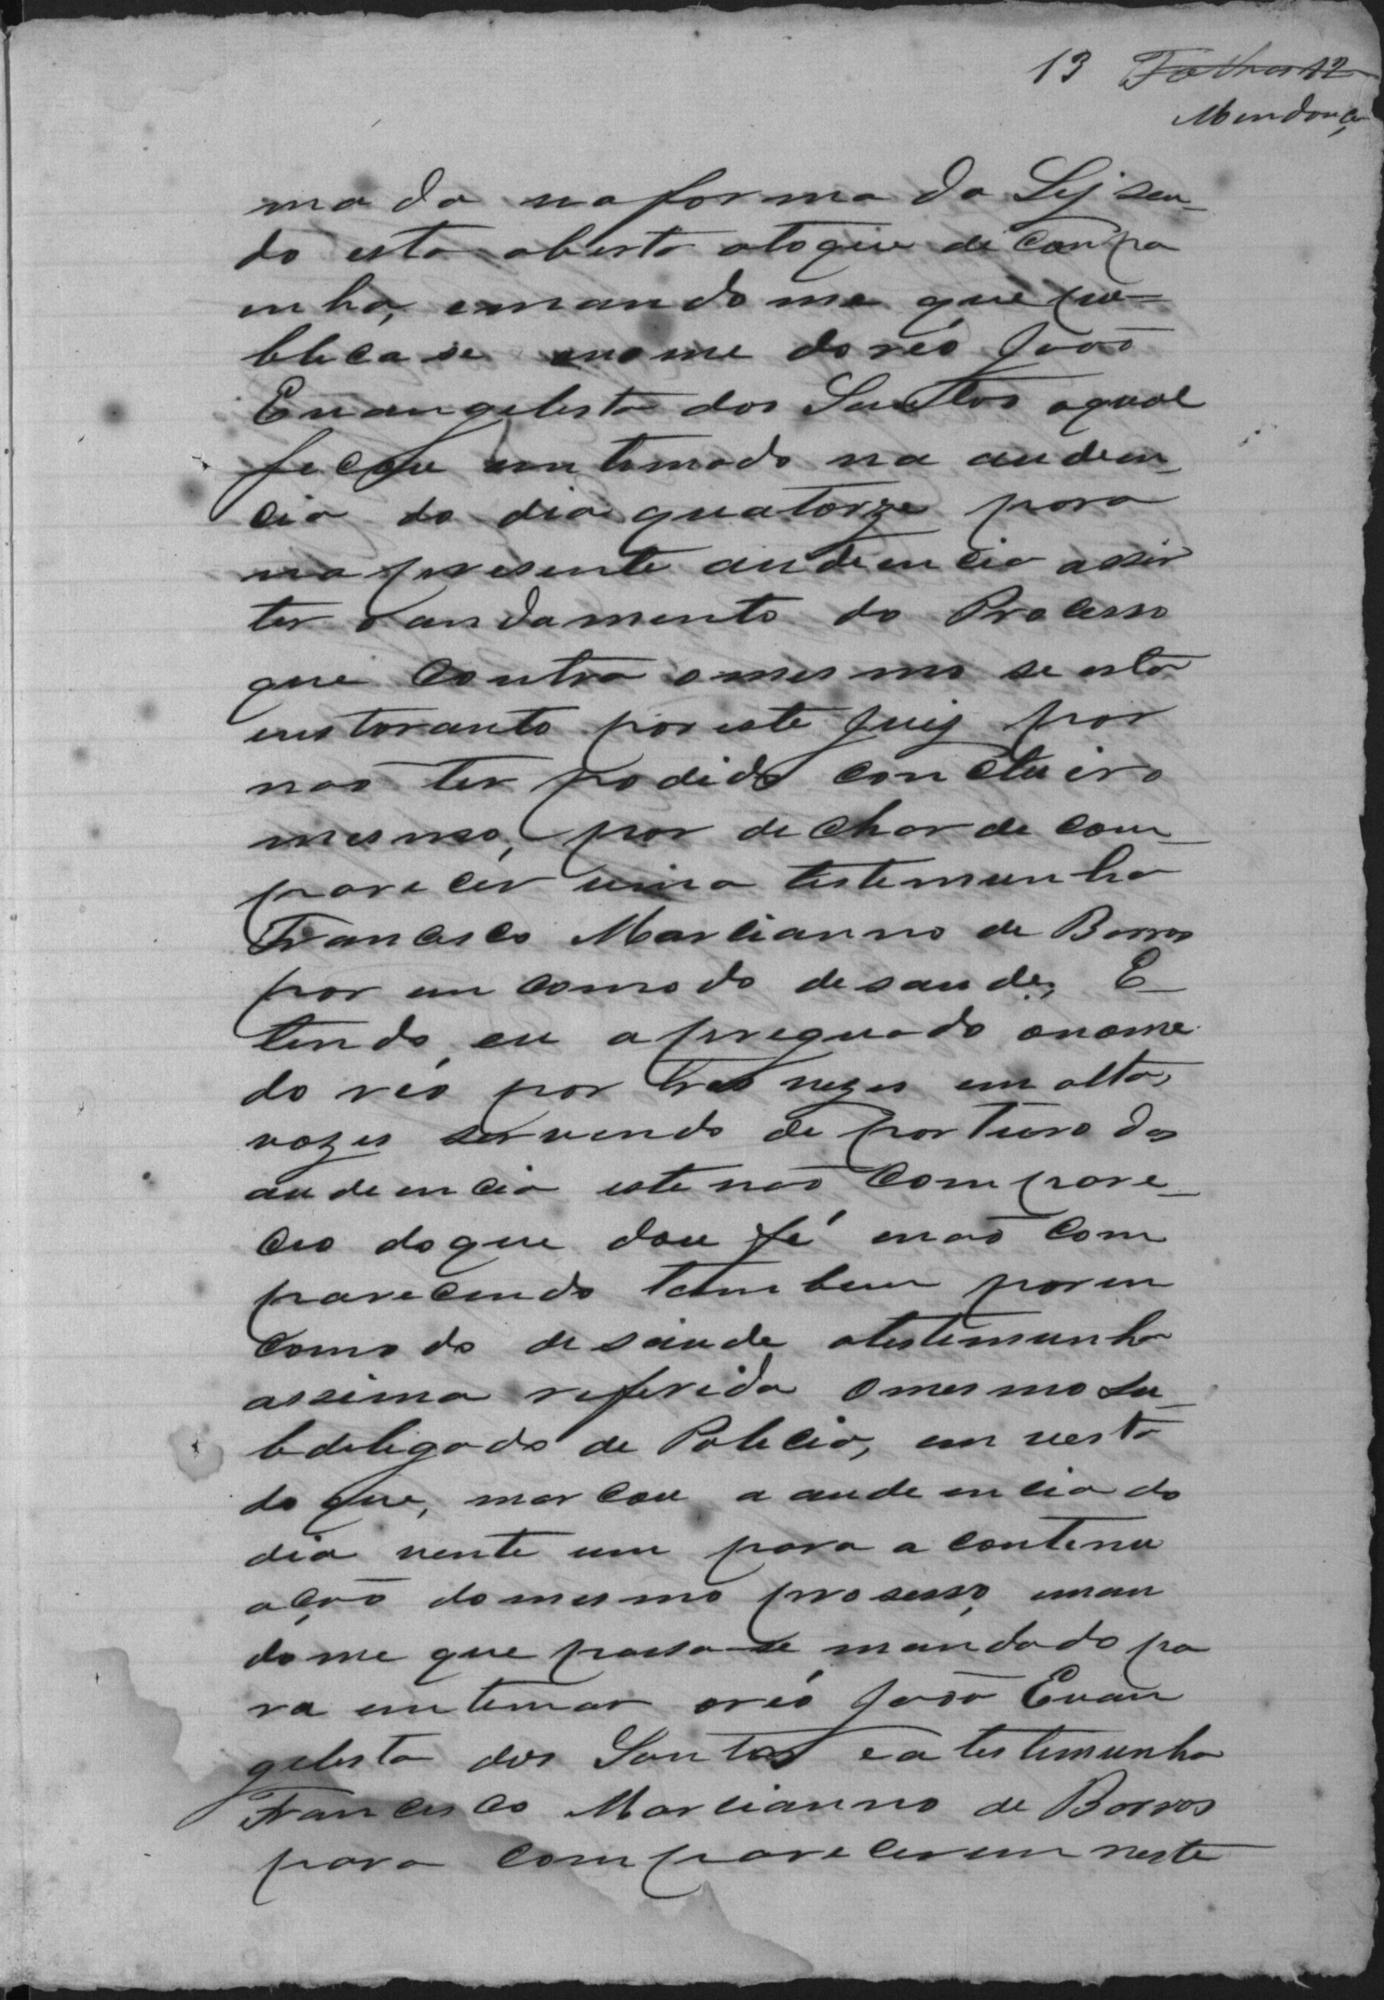 13 Folhas 12
Mendonça
mada na forma da Lej sen-
do esta aberta atoque de campa
inha, emandome que pu=
blicase onome do réo João
Evangelista dos Santos aqual
ficou entimado na audien
cia do dia quatorze para
na presente audiencia assis
ter oandamento do Processo
que contra omesmo se esta
enstoranto por este Juiz por
não ter podido concluiro
mesmo, por dechar de com-
parecer uma testemunha
Francisco Marcianno de Barros
por encomodo desaude; E
tendo eu apreguado onome
do réo por tres vezes em alta
vozes servendo de porteiro das
audiencia este não compare-
ceo doque dou fé enão com
parecendo tambem por en
comodo de saude atestemunha
assima referida omesmo Su-
bdelegado de Policia, em vesta
do que, marcou a audiencia do
dia vente um para a contenu
ação domesmo prosesso, eman
dome que passa-se mandado pa
ra entemar oréo João Evan
gelista dos Santos e a testemunha
Francisco Marcianno de Barros
para comparecerem neste